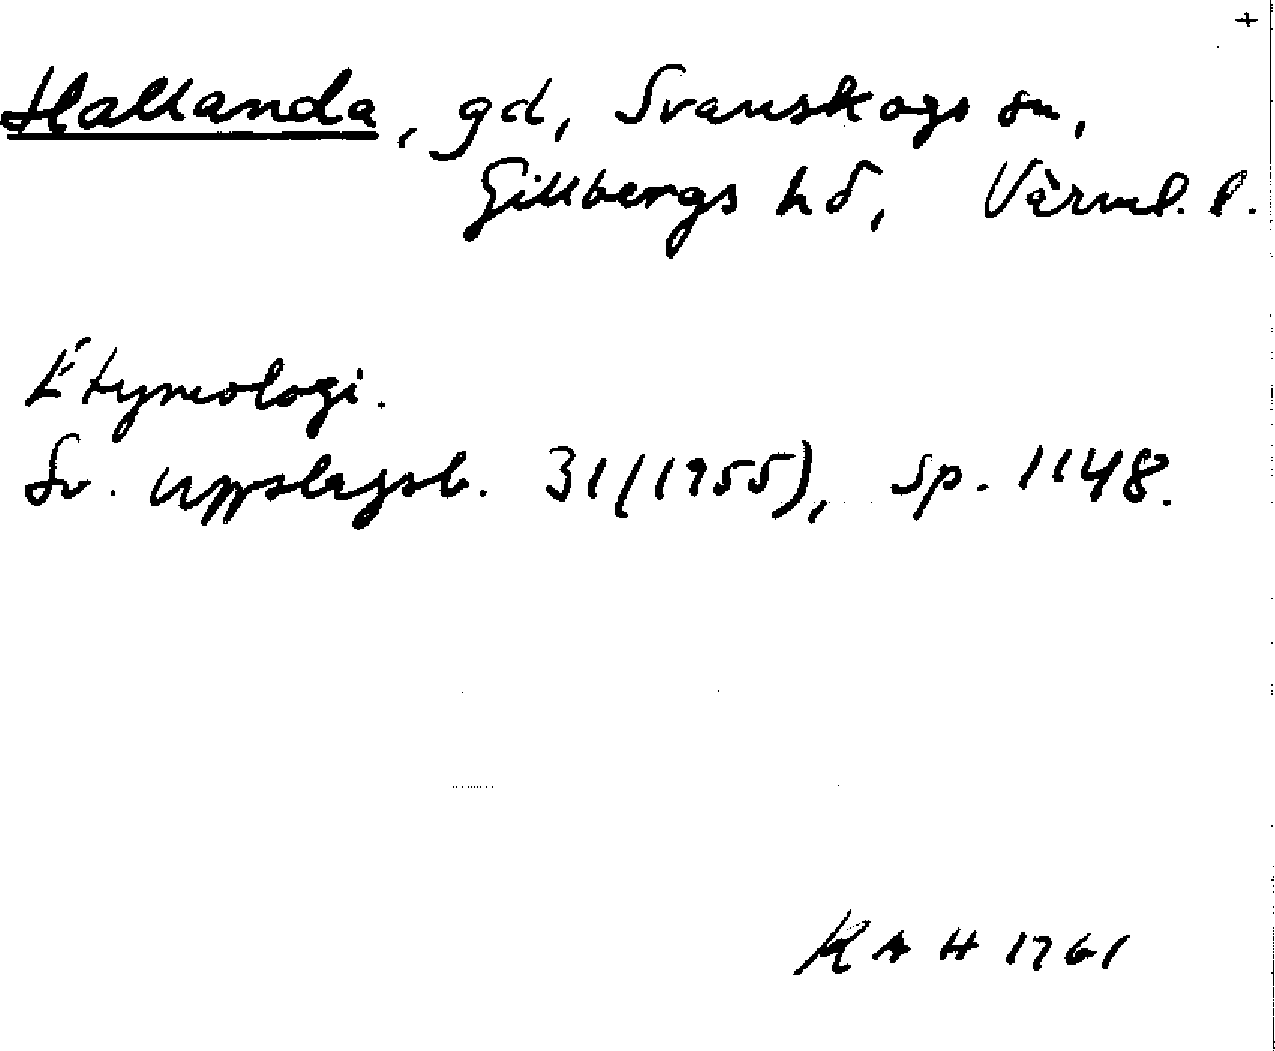 +
Hallanda, gd, Svanskogs sn,
Gillbergs hd, Värml. l.
Etymologi.
Sv. uppslagsb. 31 (1955), sp. 1148.
KAH 1761